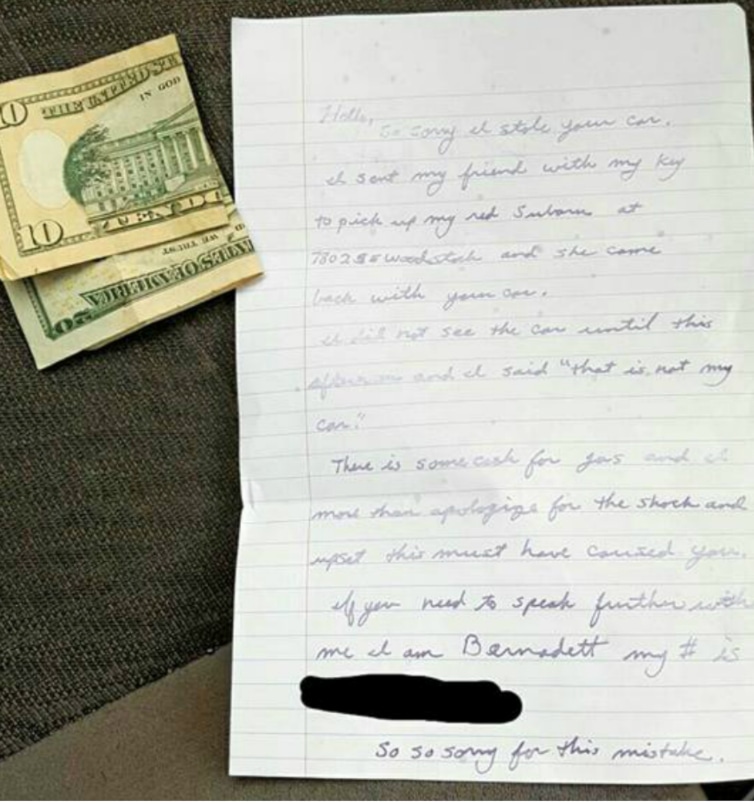 10
THE UNITED ST
IN GOD
10
TEN DO
WE TRUST
STATES OF AMERICA
20
Hello,
So sorry I stole your car.
I sent my friend with my key
to pick up my red Subaru at
7802 SE Woodstock and she came
back with your car.
I did not see the car until this
afternoon and I said "that is not my
car."
There is some cash for gas and I
more than apologize for the shock and
upset this must have caused you.
If you need to speak further with
me I am Bernadett my # is
So so sorry for this mistake.